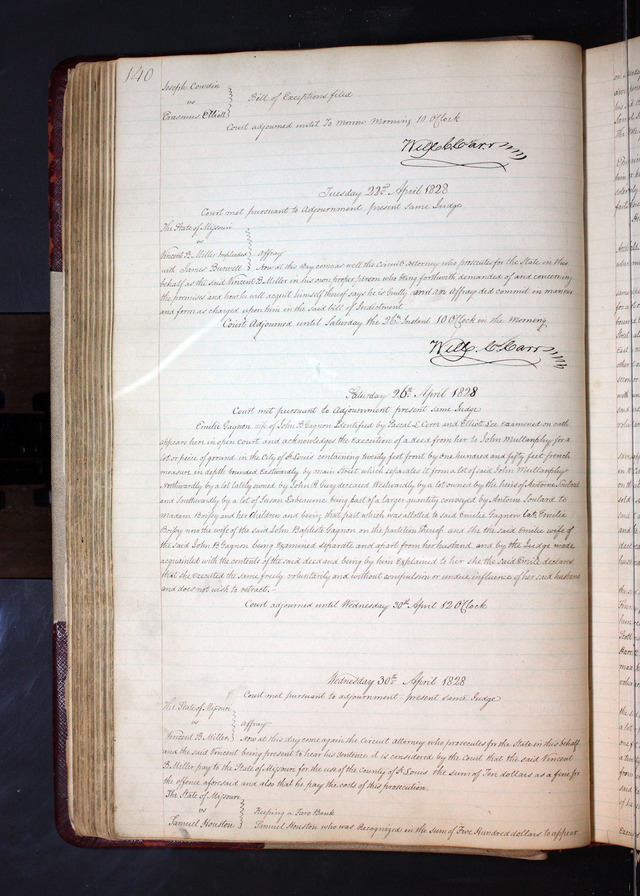 140
Joseph Cowdin
vs
Erasmus Elliott
Bill of Exceptions filed
Court adjourned until To Morrow Morning 10 OClock
Will C Carr
Tuesday 22nd April 1828
Court met pursuant to Adjournment present same Judge
The State of Missouri
vs
Vincent B. Miller impleaded
with James Burwell
Affray
Now at this day comes as well the Circuit Attorney who prosecutes for the State in this
behalf as the said Vincent B. Miller in his own proper person who being forthwith demanded of and concerning
the premises and how he will acquit himself thereof says he is Guilty and an Affray did commit in manner
and form as charged upon him in the said bill of Indictment
Court Adjourned until Saturday the 26th Instant 10 OClock in the Morning
Will C Carr
Saturday 26th April 1828
Court met pursuant to Adjournment present same Judge
Emilie Gagnon wife of John B Gagnon Identified by Pascal L Cerre and Elliott Lee Examined on oath
appears here in open court and acknowledges the Execution of a deed from her to John Mullanphy for a
lot or piece of ground in the City of St Louis containing twenty feet front by one hundred and fifty feet french
measure in depth bounded Eastwardly by main Street which separates it from a lot of said John Mullanphy
Northwardly by a lot lately owned by John P. Gury deceased Westwardly by a lot owned by the heirs of Antoine Soulard
and Southwardly by a lot of Susan Dubenume being part of a larger quantity conveyed by Antoine Soulard to
Madam Borjoy and her Children and being that part which was allotted to said Emilie Gagnon late Emilie
Borjoy now the wife of the said John Baptiste Gagnon on the partition thereof and she the said Emilie wife of
the said John B Gagnon being examined separate and apart from her husband and by the Judge made
acquainted with the contents of the said deed and being by him Explained to her she the said Emilie declares
that she executed the same freely voluntarily and without compulsion or undue influence of her said husband
and does not wish to retract.
Court adjourned until Wednesday 30th April 12 OClock
Wednesday 30th April 1828
Court met pursuant to adjournment present same Judge
The State of Missouri
vs
Vincent B. Miller
Affray
Now at this day come again the Circuit Attorney who prosecutes for the State in this behalf
and the said Vincent being present to hear his sentence it is considered by the Court that the said Vincent
B. Miller pay to the State of Missouri for the use of the County of St Louis the sum of Ten dollars as a fine for
the offence aforesaid and also that he pay the costs of this prosecution.
The State of Missouri
vs
Samuel Houston
Keeping a Faro Bank
Samuel Houston who was Recognized in the sum of Five Hundred dollars to appear